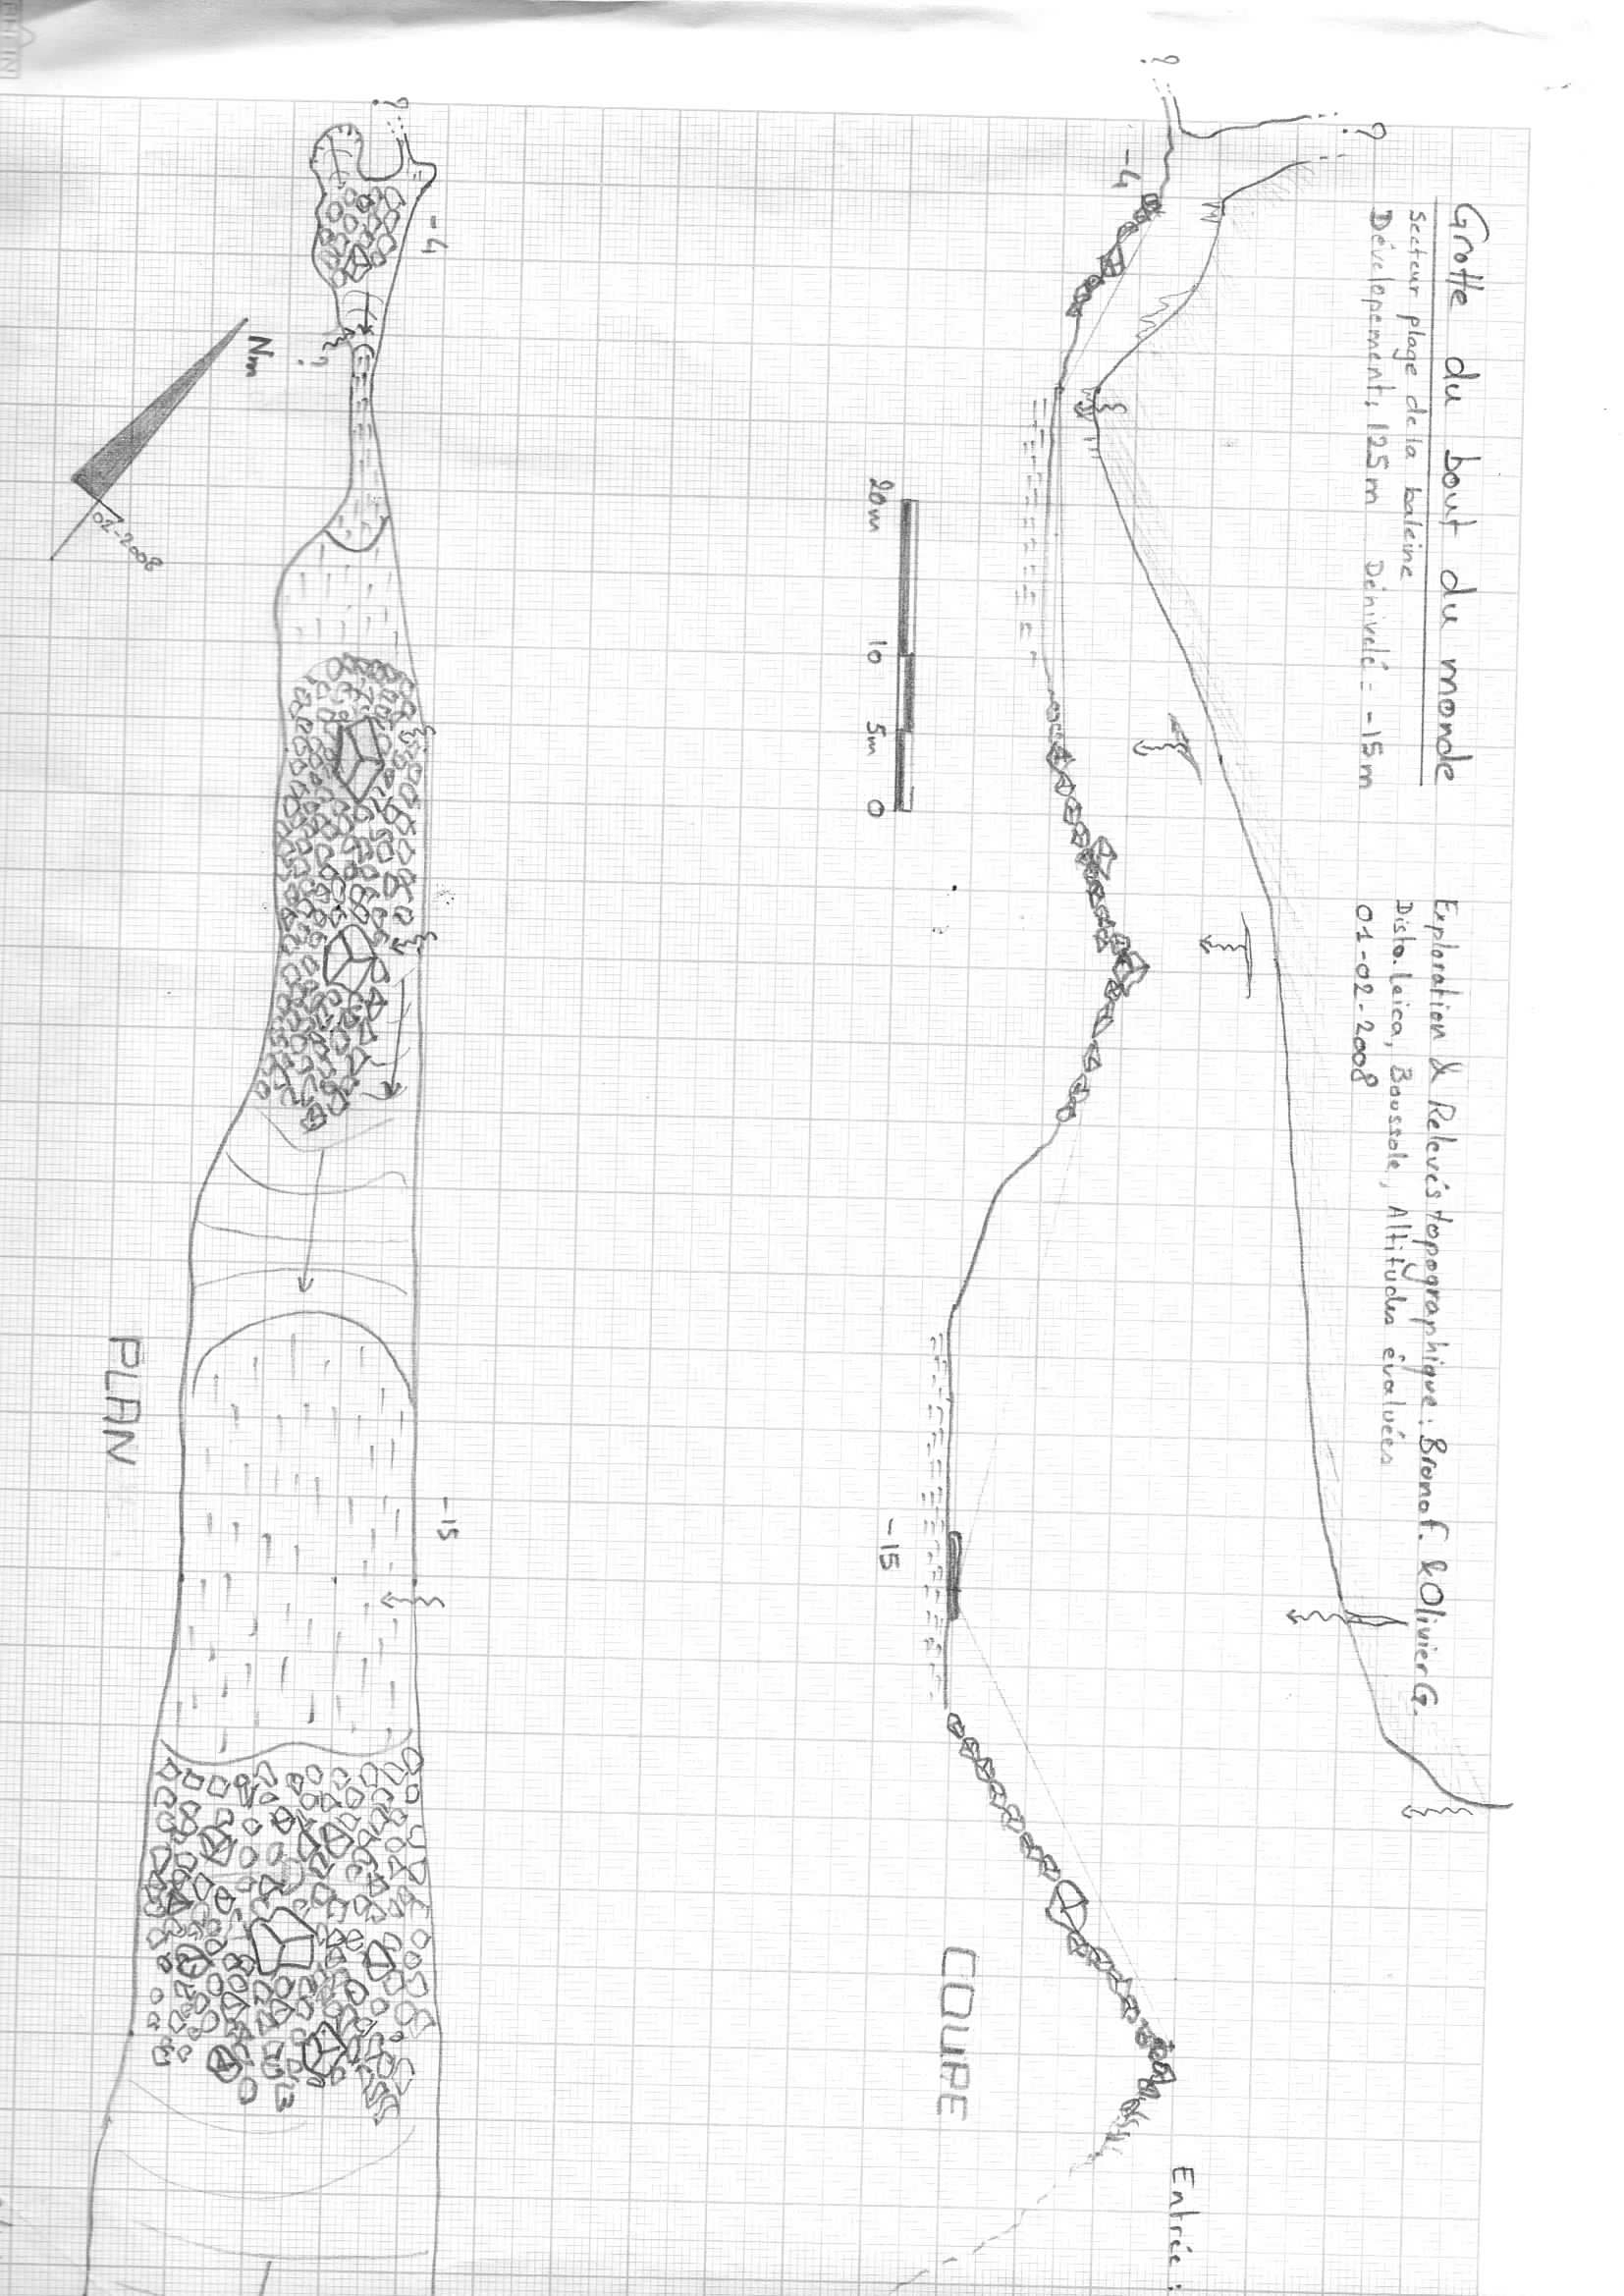 Grotte du bout du monde
Secteur plage de la baleine
Dévelopement: 125m Dénivelé: -15m
Exploration & Relevés topographique: Bruno f. & Olivier G.
Disto. Leica, Boussole, Altitudes évaluées
01-02-2008
?
?
-4
20m 10 5m 0
-15
COUPE
Entrée:
?
-4
?
Nm
02-2008
-15
PLAN